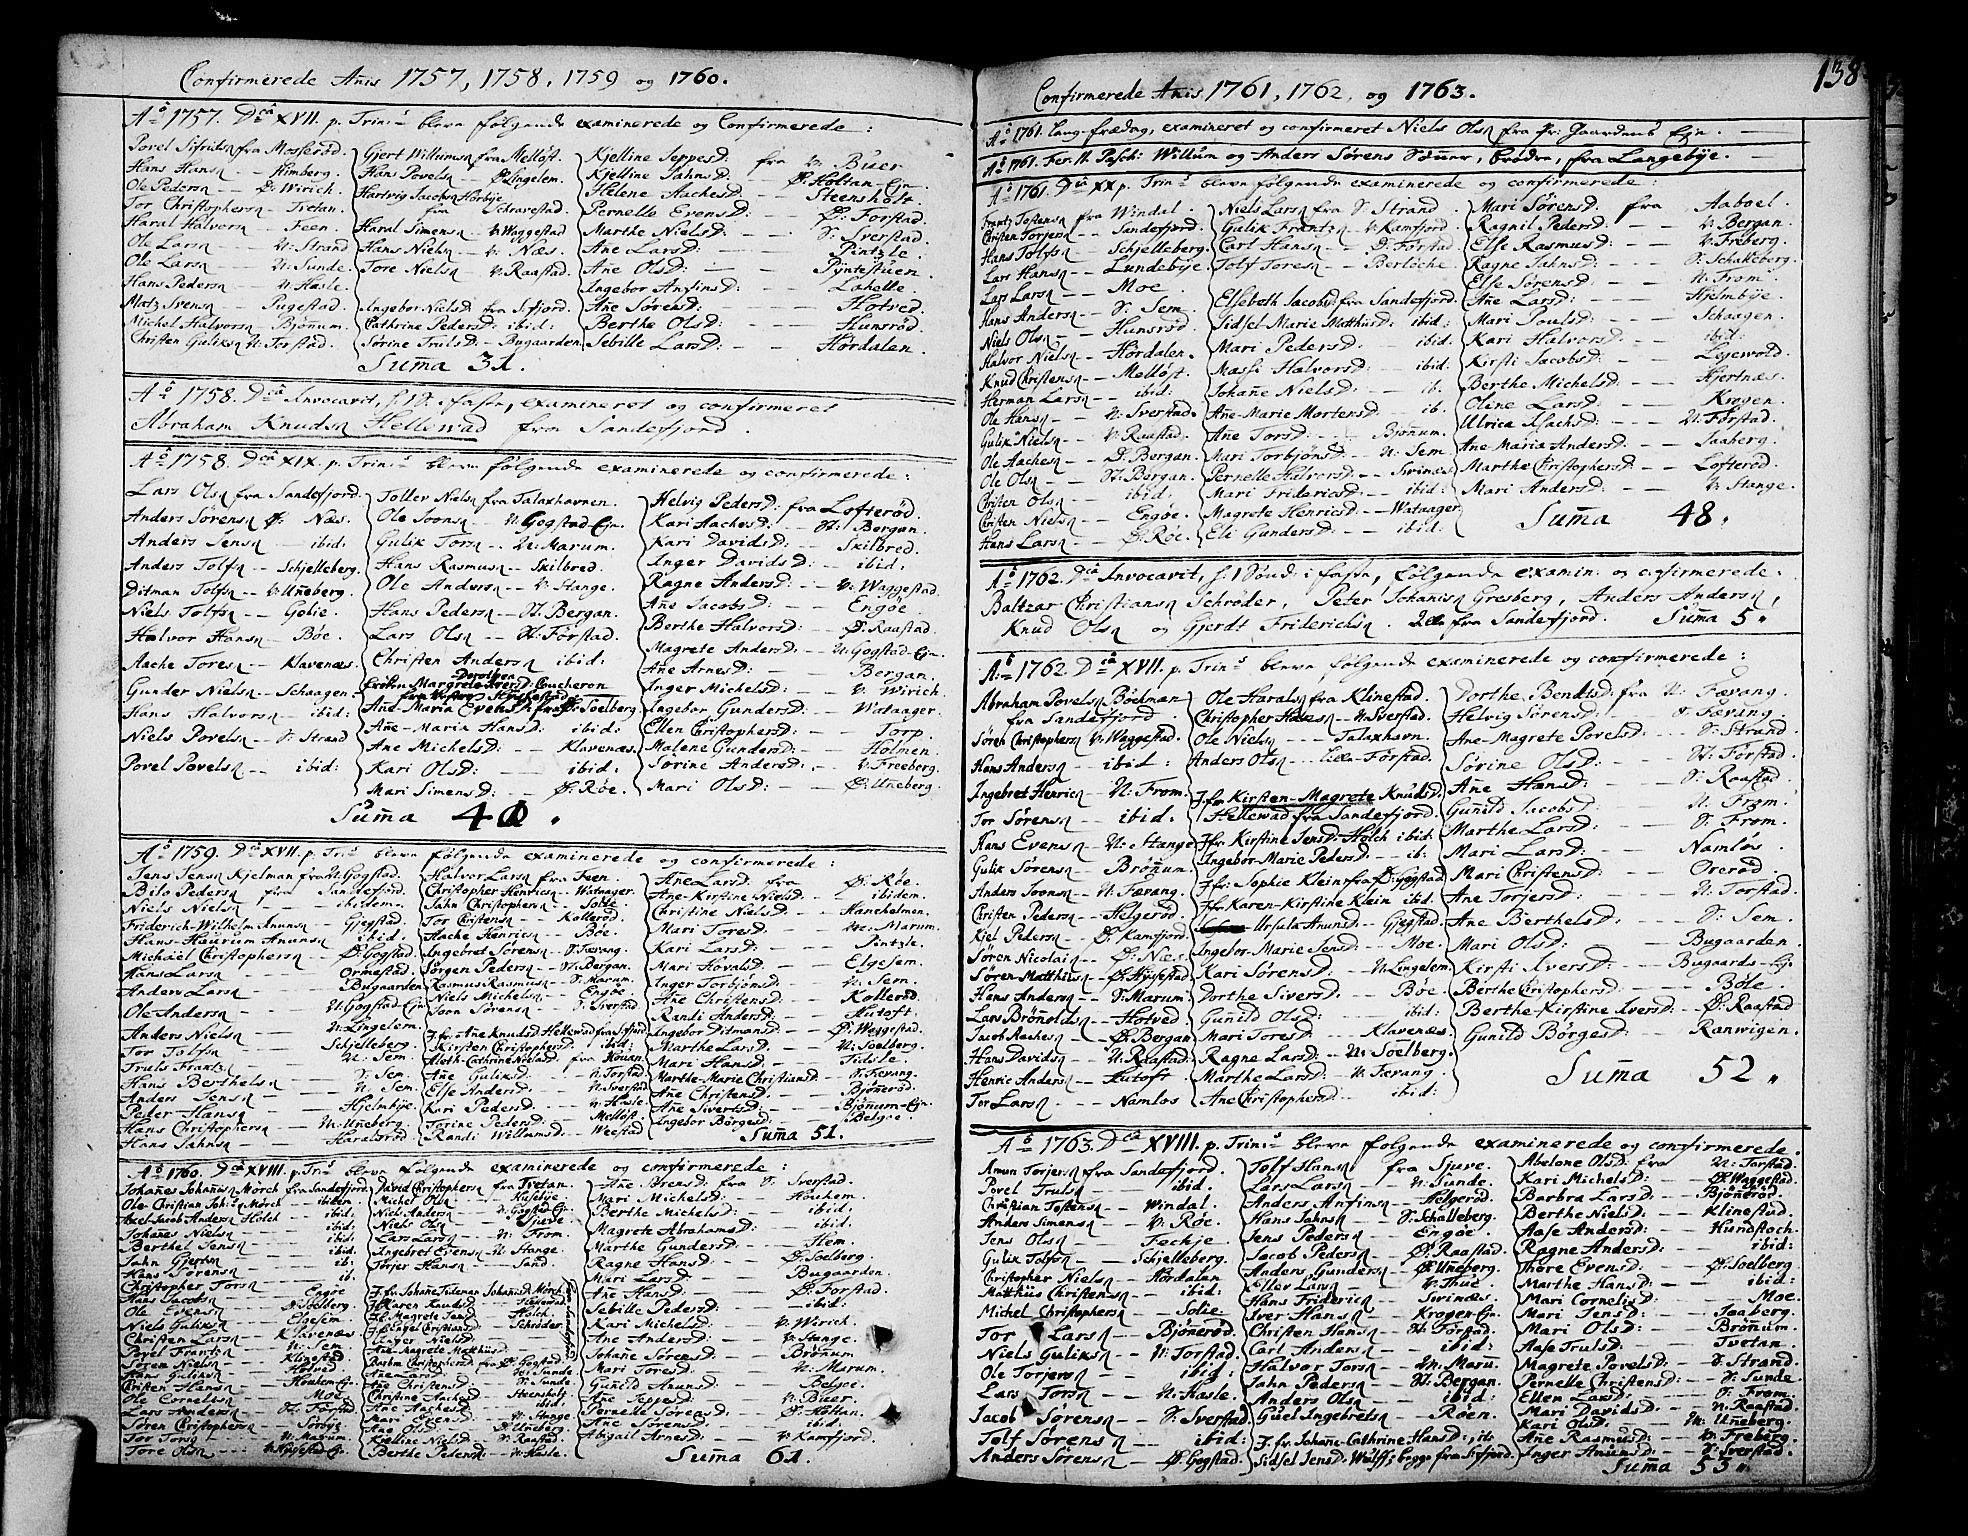 Confirmerede Añis 1757, 1758, 1759 og 1760.
Aº 1757. Dcâ XVII. p. Trin: bleve følgende examinerede og Confirmerede:
Povel Sifridsøn fra Mosserød.
Hans Hansøn -- Himberg.
Ole Pedersøn -- Ø: Wirich.
Tor Christophersøn -- Tvetan.
Haral Halvorsøn -- Feen.
Ole Larsøn -- N: Strand
Ole Larsøn -- N: Sunde.
Hans Pedersøn -- N: Hasle.
Matz Svensøn -- Pugestad.
Michel Halvorsøn -- Bjønum.
Christen Guliksøn N: Torstad.
Gjert Willumsøn fra Melløst.
Hans Povelsøn -- Ø: Lingelem.
Hartvig Jacobsøn Hörbÿe
fra Skravestad.
Haral Simensøn -- V: Waggestad
Hans Nielsøn -- V: Næs.
Tore Nielsøn -- V: Raastad.
Ingebor Nielsd: fra S: fjord.
Cathrine Pedersd: ibid:
Sørine Trulsd: -- Bugaarden
Kjelline Jeppesd: fra V: Buer
Kjelline Jahnsd: -- Ø: Holtan Ejn.
Helene Aachesd: -- Steensholt
Pernelle Evensd: -- Ø: Forstad.
Marthe Nielsd: -- S: Sverstad.
Añe Larsd: -- Pintzle.
Añe Olsd: -- Pÿntestuen.
Ingebor Anfinsd: -- Lahelle.
Añe Sørensd: -- Hotved.
Berthe Olsd: -- Hunsrød.
Sebille Larsd: -- Hørdalen.
Sum̃a 31.
Aº 1758. Dcâ Invocavit, f: 1 S: i fasten, examineret og confirmeret
Abraham Knudsøn Hellewad fra Sandefjord.
Aº 1758. Dcâ XIX. p. Trin: bleve følgende examinerede og confirmerede:
Lars Olsøn fra Sandefjord.
Anders Sørensøn Ø: Næs.
Anders Jensøn -- ibid:
Anders Tolfsøn -- Schjelleberg.
Ditman Tolfsøn -- V: Uñeberg.
Niels Tolfsøn -- Golie.
Halvor Hansøn -- Bøe.
Aache Toresøn -- Klavenæs.
Gunder Nielsøn -- Schaagen.
Hans Halvorsøn -- ibid:
Niels Povelsøn -- S: Strand
Povel Povelsøn -- ibid:
Toller Nielsøn fra Talaxhavnen.
Ole Joonsøn -- N: Gogstad Ejn.
Gulik Torsøn -- N: Marum.
Hans Rasmusøn -- Skilbred.
Ole Andersøn -- V: Stange.
Hans Pedersøn -- N: Bergan.
Lars Olsøn -- N: Förstad.
Christen Andersøn ibid:
Dorothea
Margrete Coucheron
Añe Maria Evensd: fra Ø: Soelberg.
Añe-Maria Hansd: ibid:
Ane Michelsd: -- Klavenæs.
Kari Olsd: -- ibid:
Mari Simensd: -- Ø: Røe.
Helvig Pedersd: fra Lofterød.
Kari Aachesd: -- N: Bergan.
Kari Davidsd: -- Skilbred.
Inger Davidsd: -- ibid.
Ragne Andersd: -- V: Waggestad
Añe Jacobsd: -- Engøe.
Berthe Halvorsd: -- Ø: Raastad.
Magrete Andersd: -- N: Gogstad-Ejn.
Añe Arnesd: -- Bergan.
Inger Michelsd: -- V: Wirich
Ingebor Gundersd: -- Wataager.
Ellen Christophersd: -- Torp.
Malene Gundersd: -- Holmen.
Sørine Andersd: -- V: Freeberg.
Mari Olsd: -- Ø: Uneberg.
Sum̃a 40.
Aº 1759. Dcâ XVII. p. Trin: bleve følgende examinerede og confirmerede:
Jens Jensøn Kjelman fra N: Gogstad.
Bilo Pedersøn fra Sandefjord.
Niels Nielsøn -- ibidem.
Friderich-Wilhelm Anunsøn -- Gjegstad.
Hans-Haurum Anunsøn ibid:
Michael Christophersøn -- Ø: Gogstad.
Hans Larsøn -- Ormestad.
Anders Larsøn -- Bugaarden
Ole Andersøn -- N: Gogstad-Ejn
Anders Nielsøn -- N: Lingelem.
Tor Tolfsøn -- Schjelleberg.
Truls Frantzøn -- N: Sem.
Hans Berthelsøn -- S: Sem.
Anders Jensøn -- N: Sem.
Peder Hansøn -- Hjelmbÿe.
Hans Christophersøn -- N: Uñeberg
Hans Jahnsøn -- Haralsrød
Halvor Larsøn fra Feen.
Christopher Henricsøn -- Wataager.
Jahn Christophersøn -- Solie.
Tor Christensøn -- Kollerød.
Aache Henricsøn -- Bøe.
Ingebret Sørensøn -- S: Fævang.
Jørgen Pedersøn -- N: Bergan.
Rasmus Rasmusøn -- S: Marum.
Niels Michelsøn -- Engøe
Joon Sørensøn -- S: Sverstad.
J.fr. Añe Knudsd: Hellewad fra S:fjord
Kirsten Christophersd: ibid:
Aleth-Cathrine Nielsd: fra Kouen.
Añe Guliksd: -- N: Torstad
Else Andersd: -- N: Sverstad
Kari Pedersd: -- N: Hasle.
Torine Pedersd: -- Melløst.
Randi Willumsd: -- Weestad
Añe Larsd: fra Ø: Røe.
Ane-Kirstine Nielsd: -- ibidem.
Christine Nielsd: -- Hanehelmen.
Mari Toresd: -- N: Marum.
Kari Larsd: -- Pintzle.
Mari Hovalsd: -- Elgesem.
Inger Torbjønsd: -- N: Sem.
Añe Christensd: -- Kollerød.
Randi Andersd: -- Hutoft.
Ingebor Ditmansd: -- Ø: Waggestad.
Marthe Larsd: -- N: Soelberg.
Mari Hansd: -- Tidsle.
Marthe-Marie Christiansd: -- S: Fevang.
Añe Christensd: -- Bjønerød.
Añe Sivertsd: -- Bjønum-Ejn.
Ingebor Børgesd: -- Belgøe.
Sum̃a 51.
Aº 1760. Dcâ XVIII. p. Trin: bleve følgende examinerede og confirmerede:
Johañes Johañisøn Mörch fra Sandefjord.
Ole-Christian Joh:søn Mörch -- ibidem.
Axel-Jacob Andersøn Holch -- ibid:
Johañes Nielsøn -- ibid:
Berthel Jensøn -- ibid:
Jahn Gjertsøn -- ib:
Hans Sørensøn -- ib.
Christopher Torsøn -- Engøe
Hans Jacobsøn -- N: Soelberg.
Ole Evensøn -- Elgesem.
Niels Guliksøn -- Klavenæs.
Christen Larsøn -- N: Sem.
Povel Frantzøn -- Klinestad.
Søren Nielsøn -- Hotved.
Hans Guliksøn -- Houkem Ejn.
Cristen Hansøn -- Moe.
Ole Cornelisøn
Lars Andersøn -- N: Förstad
Søren Christophersøn -- Sörbÿe.
Tor Torsøn -- N: Marum.
Tore Olsøn -- V: Hÿgestad Ejn.
David Christophersøn fra Tvetan.
Michel Olsøn -- Husebÿe.
Niels Andersøn -- N: Gogstad Ejn.
Niels Olsøn -- Sjuve.
Lars Larsøn -- N: From.
Ingebret Evensøn -- N: Stange.
Torjer Hansøn -- Sand.
J.fr. Johañe Tideman Johansd: Mörch
J.fr. Karen Knudsd: -- Hellewad
J.fr. Magrete Jensd: -- Holch
J.fr. Sissel Christiansd: -- Schrøder
Nielsd:
Añe-Magrete Matthiisd:
Christophersd: fra Ø: Gogstad.
Añe Larsd: -- N: Sunde.
Añe Christensd: -- S: Sunde
Christine Añisd: -- Steensholt
Añe Aachesd: -- ibid.
Mari Evensd: -- N: Stange
Añe Olsd: -- Ø: Uneberg.
Kjelline Nielsd: -- V: Raastad.
Berthe Pedersd: -- N: Hasle.
Añe Brensd: fra S: Sverstad.
Mari Michelsd: -- Houkem.
Berthe Michelsd: -- ibid.
Magrete Abrahamsd: -- ibid:
Marthe Gundersd: -- Hem.
Ragne Hansd: -- Ø: Soelberg.
Mari Larsd: -- Bugaarden
Añe Hansd: -- Ø: Forstad.
Sebille Pedersd: -- ibid:
Kari Michelsd: -- V: Wirich.
Añe Andersd: -- V: Stange.
Johañe Sørensd: -- Brønum
Mari Toresd: -- N: Marum.
Gunild Anunsd: -- Belgøe.
Añe Jeppesd: -- V: Buer
Pernelle Sørensd: -- Ø: Holtan.
Añe Sørensd: -- ibid.
Abigail Arnesd: -- V: Kamfjord.
Sum̃a 61.
138
Confirmerede Añis 1761, 1762, og 1763.
Aº 1761. Lang-fredag, examineret og confirmeret Niels Olsøn fra Pr: Gaardens Ejn.
Aº 1761. Fer. II. Pasch: Willum og Anders Sørens Sønner, brødre, fra Langebÿe.
Aº 1761. Dcâ XX p. Trin: bleve følgende examinerede og confirmerede:
Frantz Tostensøn fra Windal.
Christen Torjersøn -- Sandefjord.
Hans Tolfsøn -- Schjelleberg.
Lars Hansøn -- Lundebÿe.
Lars Larsøn -- Moe.
Hans Andersøn -- S: Sem.
Niels Olsøn -- Hunsrød.
Halvor Nielsøn -- Hørdalen.
Knud Christensøn -- Melløst.
Herman Larsøn -- ibid:
Ole Hansøn -- N: Sverstad.
Gulik Nielsøn -- V: Raastad.
Ole Aachesøn -- Ø: Bergan.
Ole Olsøn -- N: Bergan.
Christen Olsøn -- ibid:
Christen Nielsøn -- Engøe.
Hans Larsøn -- Ø: Røe.
Niels Larsøn fra S: Strand
Gulik Frantzøn -- V: Kamfjord.
Carl Hansøn -- Ø: Förstad
Tolf Toresøn -- Berløche.
Elsebeth Jacobsd: fra Sandefjord.
Sidsel Marie Matthiisd: ibid:
Mari Pedersd: -- ibid:
Masse Halvorsd: -- ibid:
Johañe Nielsd: -- ib.
Añe-Marie Mortensd: -- ib.
Añe Torsd: -- Bjønum.
Mari Torbjønsd: -- N: Sem
Pernelle Halvorsd: -- Svinæs.
Mari Fridericsd: -- ibid:
Magrete Henricsd: -- Wataager.
Eli Gundersd: -- ibid:
Mari Sørensd: fra Aaboel.
Ragnil Pedersd: -- V: Bergan.
Else Rasmusd: -- V: Freberg.
Ragne Jahnsd: -- S: Schalleberg.
Else Sørensd: -- N: From.
Añe Larsd: -- Hjelmbÿe.
Mari Poulsd: -- Schaagen.
Kari Halvorsd: -- ibid:
Kirsti Jacobsd: -- Lejewold.
Berthe Michelsd: -- Hjertnæs.
Olene Larsd: -- Krogen.
Ulrica Isachsd: -- N: Förstad.
Ane-Maria Andersd: -- Saaberg.
Marthe Christophersd: -- Lofterød.
Mari Andersd: -- V: Stange.
Sum̃a 48.
Aº 1762. Dcâ Invocavit, f: 1 Sønd: i fasten, følgende examin: og confirmerede:
Baltzar Christiansøn Schrøder, Peter Johañisøn Gresberg, Anders Andersøn,
Knud Olsøn og Gjerdt Friderichsøn. alle fra Sandefjord. Sum̃a 5.
Aº 1762. Dcâ XVII. p. Trin: bleve følgende examinerede og confirmerede:
Abraham Povelsøn Böckman
fra Sandefjord
Søren Christophersøn V: Waggestad.
Hans Andersøn -- ibid:
Ingebret Henricsøn N: From.
Tor Sørensøn -- ibid:
Hans Evensøn -- N: Stange
Gulik Sørensøn -- Brønum.
Anders Joonsøn -- N: Fævang.
Christen Pedersøn -- Helgerød.
Kjel Pedersøn -- Ø: Kamfjord.
Søren Nicolaisøn -- Ø: Næs.
Søren Matthiisøn -- Ø: Hÿgestad
Hans Andersøn -- S: Marum.
Lars Brønildsøn -- Hotved.
Jacob Aachesøn -- Ø: Bergan
Hans Davidsøn -- N: Raastad.
Henric Andersøn -- Hutoft
Tor Larsøn -- Namløs
Ole Haralsøn fra Klinestad.
Christopher Hansøn -- N: Sverstad.
Ole Nielsøn -- Talaxhavn.
Anders Olsøn -- lille-Förstad.
J.fr. Kirsten-Magrete Knudsd:
Hellewad fra Sandefjord.
J.fr. Kirstine Jensd: Holch ibid:
Ingebor-Marie Pedersd: -- ib:
J.fr. Sophie Klein fra Ø: Gogstad
J.fr. Karen-Kirstine Klein ibid.
Ursula Anunsd: -- Gjegstad.
Ingebor-Marie Jensd: -- Moe.
Kari Sørensd: -- N: Lingelem.
Dorthe Siversd: -- Bøe.
Gunild Olsd: -- ibid:
Mari Toresd: -- Klavenæs.
Ragne Larsd: -- N: Soelberg.
Marthe Larsd: -- N: Fevang.
Ane Christophersd: -- ibid:
Dorthe Bendtsd: fra N: Fævang.
Helvig Sørensd: -- S: Fævang.
Ane-Magrete Povelsd: -- S: Strand
Sørine Olsd: -- N: Förstad.
Añe Hansd: -- S: Raastad
Gunild Jacobsd: -- N: From.
Marthe Larsd: -- S: From.
Mari Larsd: -- Namløs
Mari Christensd: -- Orerød.
Ane Torjersd: -- N: Torstad.
Ane Berthelsd: -- S: Sem.
Mari Olsd: -- Bugaarden
Kirsti Iversd: -- Bugaards-Ejn
Berthe Christophersd: -- Bøle.
Berthe-Kirstine Iversd: -- Ø: Raastad
Gunild Børgesd: -- Ranwigen.
Sum̃a 52.
Aº 1763. Dcâ XVIII. p. Trin: bleve følgende examinerede og confirmerede.
Amun Torjersøn fra Sandefjord.
Povel Trulsøn -- ibid.
Christian Tostensøn -- Windal.
Anders Simensøn -- V: Røe.
Jens Olsøn -- Fechje.
Gulik Tolfsøn -- Schjelleberg.
Christopher Nielsøn -- Hørdalen
Matthiis Christensøn -- ibid.
Michel Christophersøn -- Solie.
Tor Larsøn -- Bjønerød.
Niels Guliksøn -- N: Torstad.
Ole Torjersøn -- ibid:
Lars Torsøn -- N: Hasle.
Jacob Sørensøn -- S: Sverstad.
Tolf Sørensøn -- ibid:
Anders Sørensøn -- Ø: Gogstad.
Tolf Hansøn fra Sjuve.
Lars Larsøn -- N: Sunde.
Anders Anfinsøn -- Helgerød.
Hans Jahnsøn -- S: Schalleberg.
Jens Pedersøn -- Engøe.
Jacob Pedersøn -- Ø: Raastad.
Anders Gundersøn -- Ø: Uneberg.
Ellev Larsøn -- V: Thue.
Hans Fridericsøn -- Svinæs.
Iver Hansøn -- Krogen-Ejn.
Christen Hansøn -- N: Förstad.
Carl Andersøn -- ibid:
Halvor Torsøn -- N: Maru.
Jahn Pedersøn -- N: Bergan.
Anders Olsøn -- ibid:
Guel Ingebretsøn -- Røen.
J.fr. Johañe-Cathrine Hansd: ib:
Sidsel Jensd: Wulff, begge fra S:fjord.
Abelone Olsd: fra N: Torstad.
Kari Michelsd: -- Ø: Waggestad.
Barbra Larsd: -- Bjønerød.
Berthe Nielsd: -- Klinestad.
Aase Andersd: -- Hundstoch.
Ragne Andersd: -- ibid:
Thore Evensd: -- Ø: Soelberg
Marthe Hansd: -- ibid:
Mari Cornelisd: -- Moe.
Mari Jensd: -- Saaberg.
Mari Olsd: -- Brønum.
Aase Trulsd: -- Tvetan.
Magrete Povelsd: -- S: Strand.
Pernelle Christensd: -- S: Sunde
Ellen Larsd: -- S: From.
Mari Davidsd: -- N: Raastad
Kari Olsd: -- N: Uñeberg.
Añe Rasmusd: -- V: Freberg.
Inger Anunsd: -- S: Sverstad.
Sum̃a 53.